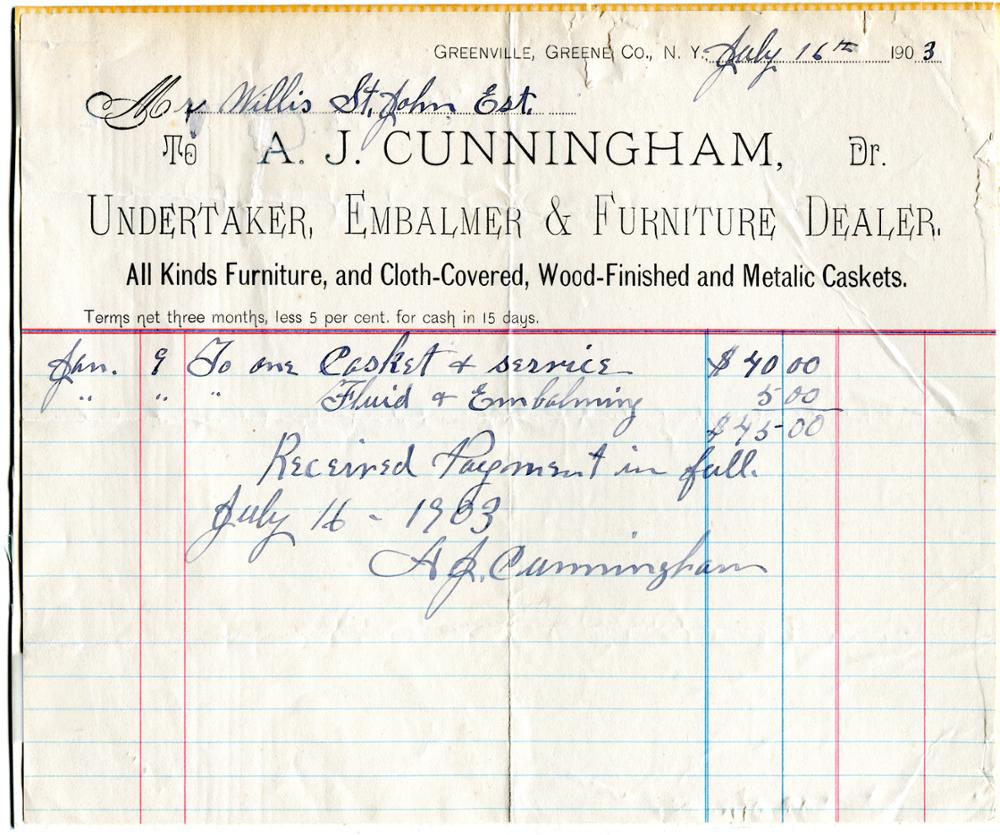 Greenville, Greene Co., N. Y. July 16th 1903
Mr Willis St. John Est.
To A. J. Cunningham, Dr.
Undertaker, Embalmer & Furniture Dealer.
All Kinds Furniture, and Cloth-Covered, Wood-Finished and Metalic Caskets.
Terms net three months, less 5 per cent. for cash in 15 days.
Jan. 9 To one Casket & service $ 40 00
" " " Fluid & Embalming 5 00
$ 45 00
Received Payment in full.
July 16 - 1903
A J. Cunningham